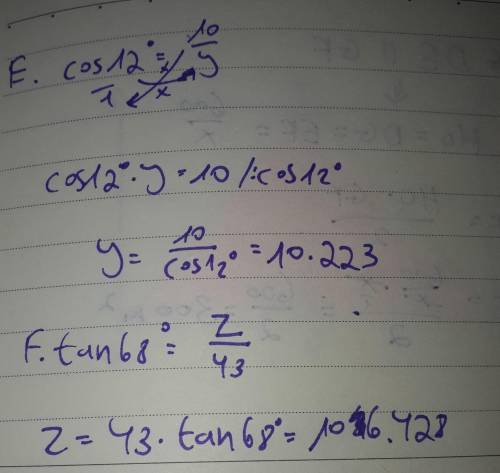 E. cos12° = 10/y
1 x x
cos12°·y = 10 /:cos12°
y = 10/cos12° = 10.223
F. tan68° = z/43
z = 43·tan68° = 106.428